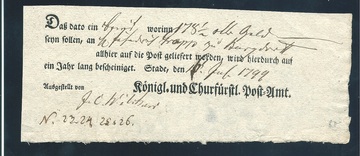 Daß dato ein Brief worinn 178½ rtl Geld
seyn sollen, an
allhier auf die Post geliefert worden, wird hierdurch auf
ein Jahr lang bescheiniget. Stade, den Jul. 1799
Königl. und Churfürstl. Post-Amt.
Ausgestellt von
J. C.
N. 23. 24. 25 & 26.